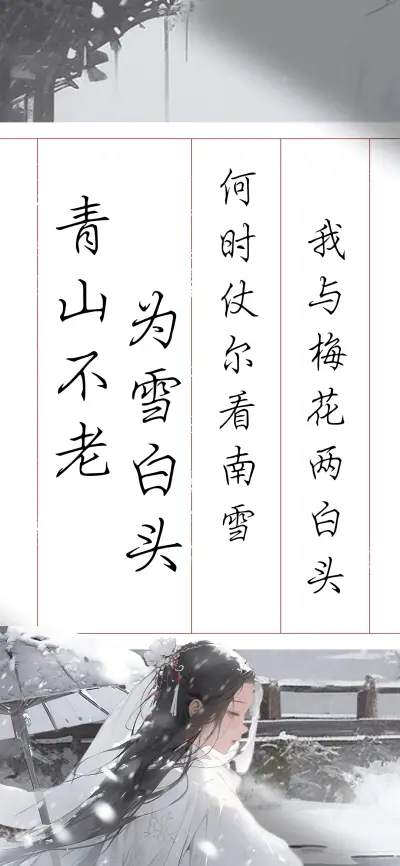 青山不老
为雪白头
何时仗尔看南雪
我与梅花两白头